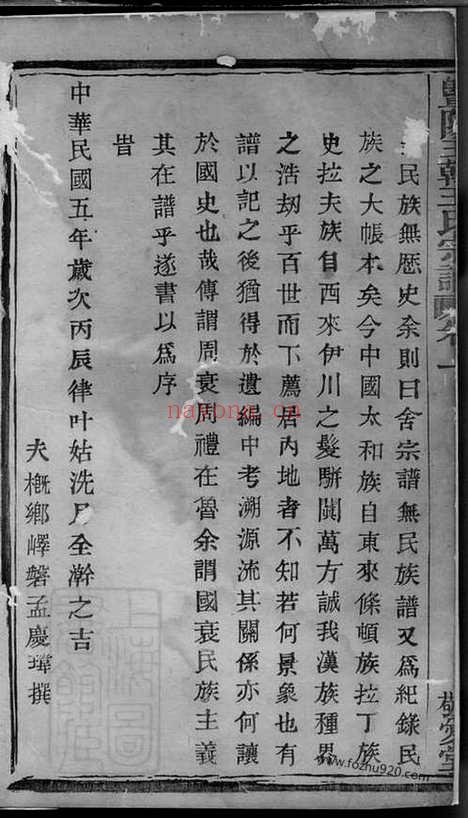 暨陽 王氏宗譜 卷一
民族無歷史余則曰舍宗譜無民族譜又爲紀錄民
族之大帳本矣今中國太和族自東來條頓族拉丁族
史拉夫族自西來伊川之髮駢闐萬方誠我漢族種界
之浩劫乎百世而下薦居內地者不知若何景象也有
譜以記之後猶得於遺編中考溯源流其關係亦何讓
於國史也哉傳謂周衰周禮在魯余謂國衰民族主義
其在譜乎遂書以爲序
旹
中華民國五年歲次丙辰律叶姑洗月全澣之吉
夫槪鄉嶧磐孟慶璋撰
敬 堂
nayong.cn
www.fozhu920.com